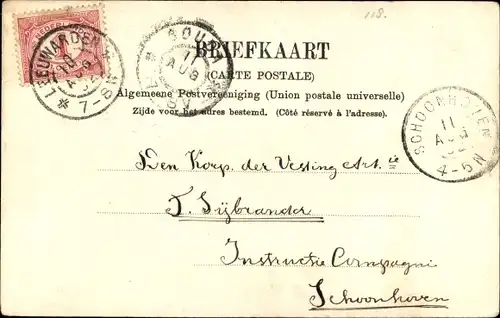 118.
NEDERLAND
LEEUWARDEN
10
AUG
7-8
GOUDA
11
AUG
BRIEFKAART
(CARTE POSTALE)
Algemeene Postvereeniging (Union postale universelle)
Zijde voor het adres bestemd. (Côté réservé à l'adresse).
SCHOONHOVEN
11
AUG
4-5N
Den Korp. der Vesting Art. ie
T. Sijbrander
Instructie Compagni
Schoonhoven